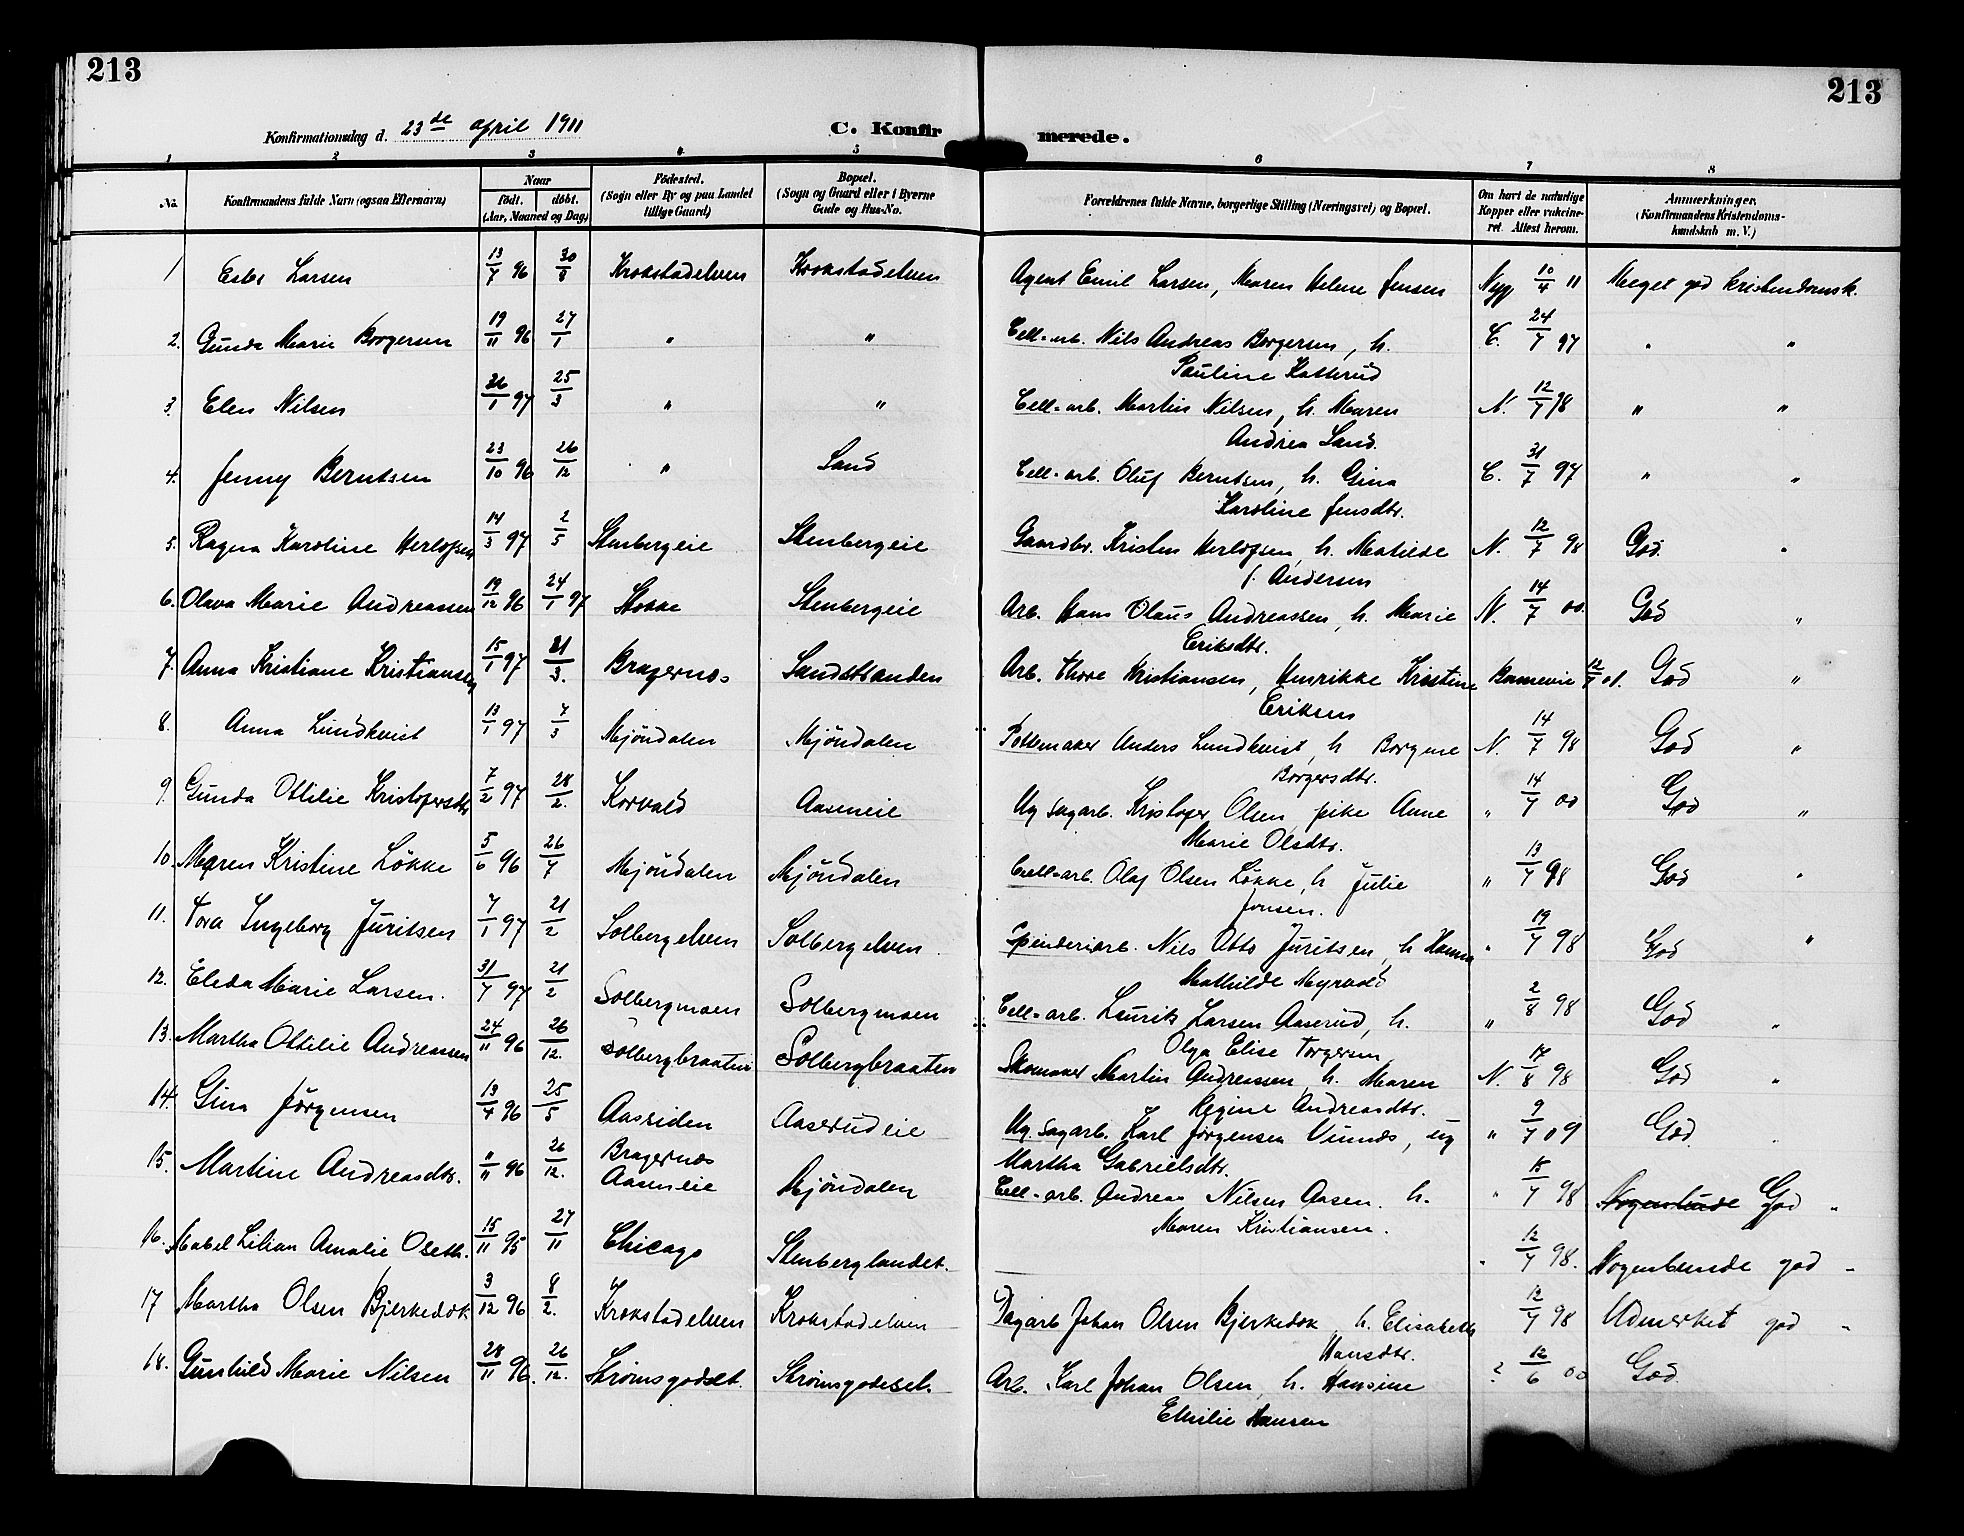 213
213
Konfirmationsdag d. 23de april 1911
C. Konfirmerede.
1 2 3 4 5 6 7 8
No.
Konfirmandens fulde Navn (ogsaa Efternavn)
Naar
født. døbt.
(Aar, Maaned og Dag)
Fødested.
(Sogn eller By og paa Landet
tillige Gaard)
Bopæl.
(Sogn og Gaard eller i Byerne
Gade og Hus-No.
Forældrenes fulde Navne, borgerlige Stilling (Næringsvei) og Bopæl.
Om havt de naturlige
Kopper eller vakcine-
ret. Attest herom.
Anmærkninger.
(Konfirmandens Kristendoms-
kundskab m. V.)
1 Larsen 13/7 96 30/8 Krokstadelven Krokstadelven Agent Emil Larsen, Maren Helene Jensen Nyg 10/4 11 Meget god kristendomsk.
2. Gunda Marie Borgersen 19/11 96 27/1 " " Cell-arb. Nils Andreas Borgersen, h. C. 24/7 97 " "
Pauline Katterud
3. Elen Nilsen 26/1 97 25/3 " " Cell-arb. Martin Nilsen, h. Maren N. 12/7 98 " "
Andrea Sand.
4. Jenny Berntsen 23/10 96 26/12 " Sand Cell-arb. Oluf Berntsen, h. Gina C. 31/7 97 " "
Karoline Jensdtr.
5. Ragna Karoline Herlofsen 14/3 97 2/5 Stenbergeie Stenbergeie Gaardbr. Kristen Herlofsen, h. Matilde N. 12/7 98 God. "
f. Andersen
6. Olava Marie Andreassen 19/12 96 24/1 97 Stokke Stenbergeie Arb. Hans Olaus Andreassen, h. Marie N. 14/7 00. God "
Eriksdtr.
7. Anna Kristiane Kristiansen 15/1 97 21/3. Bragernes Sandstranden Arb. Thore Kristiansen, Henrikke Kristine 12/7 01. God "
Eriksen
8. Anna Lundkvist 13/1 97 7/3 Mjöndalen Mjöndalen Pottemaker Anders Lundkvist, h. Borgine N. 14/7 98 God "
Borgersdtr.
9. Gunda Ottilie Kristofersdtr 7/2 97 28/2. Korvald Aaseneie Ug sagarb. Kristofer Olsen pike Anne " 14/7 00 God "
Marie Olsdtr.
10. Maren Kristine Lökke 5/6 96 26/7 Mjöndalen Mjöndalen Cell-arb. Olaf Olsen Lökke, h Julie " 13/7 98 God "
Jonsen.
11. Tora Ingeborg Juritsen 7/1 97 21/2 Solbergelven Solbergelven Spinderiarb. Nils Otto Juritsen, h Hanna " 19/7 98 God "
Mathilde Myrvold
12. Eleda Marie Larsen. 31/7 97 21/2 Solbergmoen Solbergmoen Cell-arb. Laurits Larsen Aaserud, h. " 2/8 98 God "
Olga Elise Torgersen
13. Martha Ottilie Andreassen 24/11 96 26/12. Solbergbraaten Solbergbraaten Skomaker Martin Andreassen, h. Maren N. 17/8 98 God "
Regine Andreasdtr.
14. Gina Jörgensen 13/4 96 25/5 Aassiden Aaserudeie Ug. sagarb. Karl Jörgensen Vinnes, ug " 9/7 09 God. "
Martha Gabrielsdtr.
15. Martine Andreasdtr. 11/11 96 26/12. Bragernes Mjöndalen Cell-arb. Andreas Nilsen Aasen. h. " 15/7 98 Nogenlunde God "
Aaseneie
Maren Kristiansen.
16. Mabel Lilian Amalie Oseth. 15/11 95 27/11 Chicago Stenberglandet. " 12/7 98. Nogenlunde god "
17 Martha Olsen Bjerkedok 3/12 96 8/2. Krokstadelven Krokstadelven Dagarb Johan Olsen Bjerkedok, h. Elisabeth 12/7 98 Udmerket god "
Hansdtr.
18. Gunhild Marie Nilsen 28/11 96. 26/12. Strömsgodset. Strömsgodset. Arb. Karl Johan Olsen, h. Hansine ? 12/6 00 God.
Emilie Hansen